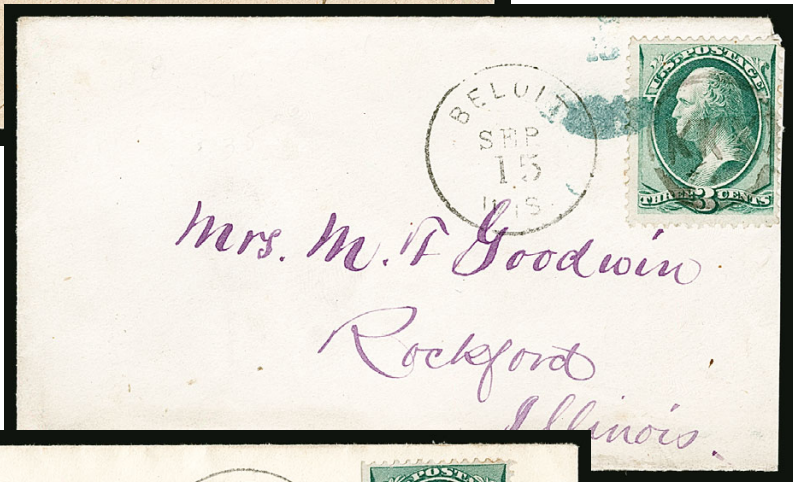 BELOIT
SEP
15
WIS
U.S. POSTAGE
THREE 3 CENTS
Mrs. M. F Goodwin
Rockford
Illinois.
POSTA